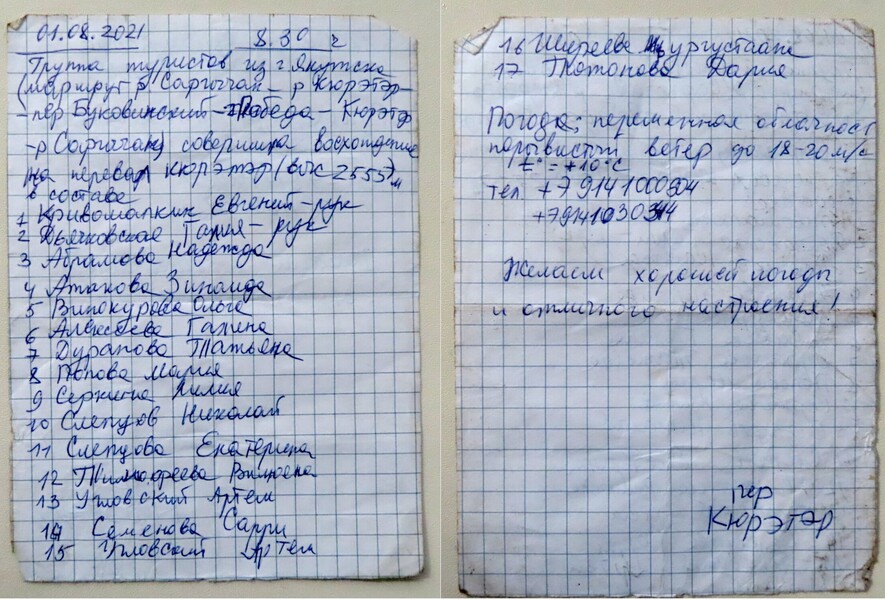 01.08.2021 8.30 ч
Группа туристов из г Якутска
(маршрут р Саргычан – р Кюрэтэр –
– пер Буковинский – Победа – Кюрэтэр
– р Саргычан) совершила восхождение
на перевал Кюрэтэр (выс 2555)м
в составе
1 Кривошапкин Евгений – рук
2 Дьячковская Галия – рук
3 Абрамова Надежда
4 Атакова Зинаида
5 Винокурова Ольга
6 Алексеева Галина
7 Дуранова Татьяна
8 Попова Мария
9 Серкина Лилия
10 Слепцов Николай
11 Слепцова Екатерина
12 Тимофеева
13 Угловский Артем
14 Семенова Саргы
15 Угловский Артем
16 Ширеева
17 Потапова Дария
Погода: переменная облачност
порывистый ветер до 18-20 м/с
t° = +10°С
тел. +79141000504
Желаем хорошей погоды
и отличного настроения!
пер
Кюрэтэр